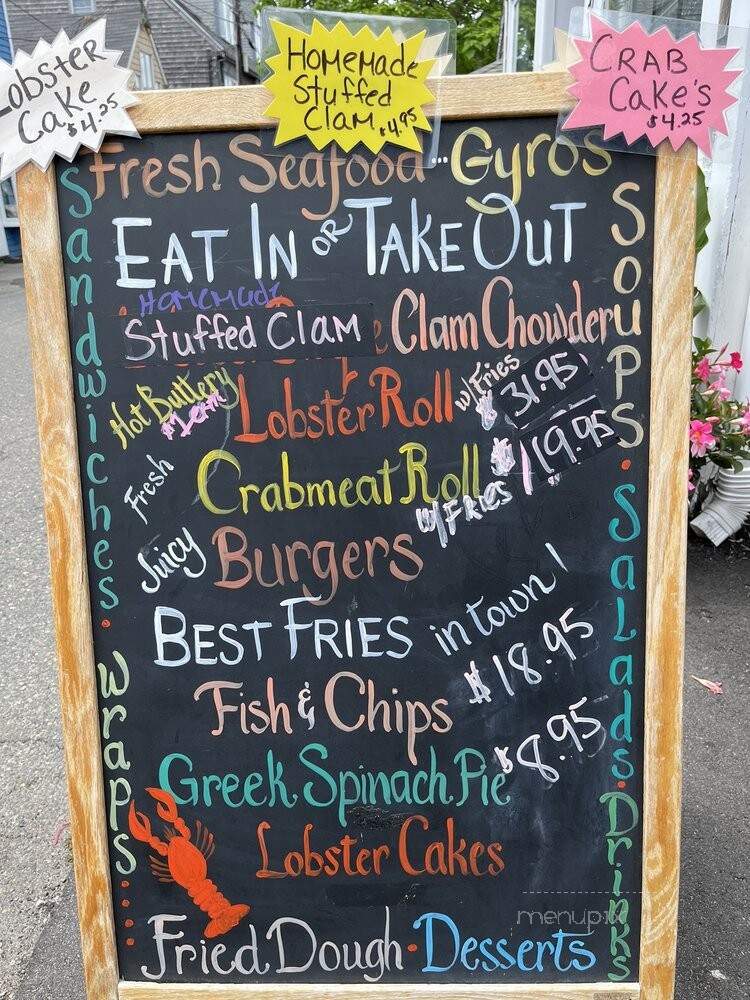 Lobster
Cake
$4.25
Homemade
Stuffed
Clam $4.95
CRAB
Cake's
$4.25
Fresh Seafood... Gyros
EAT IN OR TAKE OUT
HOMEMADE
Stuffed Clam
Clam Chowder
Hot Buttery
Lobster Roll w/Fries $31.95
Fresh
Crabmeat Roll $19.95
w/Fries
Juicy Burgers
BEST FRIES in town!
Fish & Chips $18.95
Greek Spinach Pie $8.95
Lobster Cakes
Fried Dough • Desserts
Sandwiches • Wraps....
Soups • Salads • Drinks
menupix